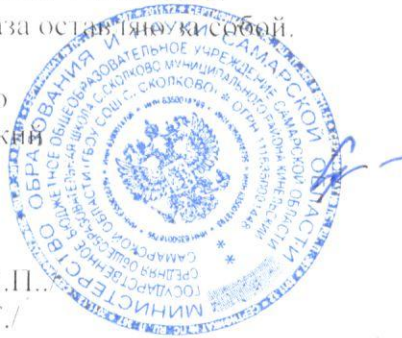 за оставляю за собой.
о
кий
МИНИСТЕРСТВО ОБРАЗОВАНИЯ И НАУКИ САМАРСКОЙ ОБЛАСТИ
ГОСУДАРСТВЕННОЕ БЮДЖЕТНОЕ ОБЩЕОБРАЗОВАТЕЛЬНОЕ УЧРЕЖДЕНИЕ САМАРСКОЙ ОБЛАСТИ
СРЕДНЯЯ ОБЩЕОБРАЗОВАТЕЛЬНАЯ ШКОЛА С. СКОЛКОВО МУНИЦИПАЛЬНОГО РАЙОНА КИНЕЛЬСКИЙ
САМАРСКОЙ ОБЛАСТИ (ГБОУ СОШ С. СКОЛКОВО) * ОГРН
.П../
./